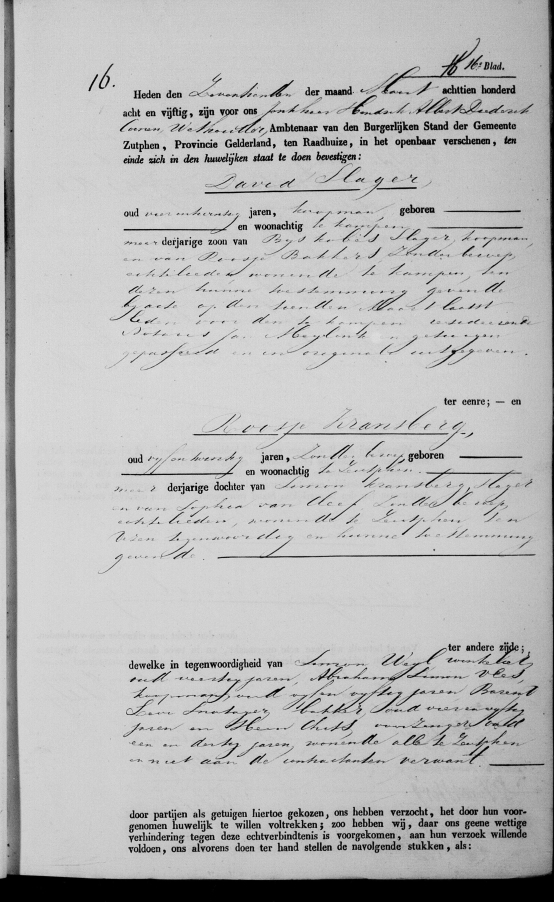 16.
16 16e Blad.
Heden den Zeventienden der maand Maart achttien honderd
acht en vijftig, zijn voor ons Jonkheer Hendrik Albert Diederik
Coenen Ambtenaar van den Burgerlijken Stand der Gemeente
Zutphen, Provincie Gelderland, ten Raadhuize, in het openbaar verschenen, ten
einde zich in den huwelijken staat te doen bevestigen:
David Slager,
oud vierentwintig jaren, koopman, geboren
en woonachtig te Kampen,
meerderjarige zoon van Slager, koopman,
en van Roosje Bakkers, zonder beroep,
echtelieden wonende te Kampen, ten
dezen hunne toestemming gevende
bij acte op den tienden Maart laatst
leden voor den te Kampen resideerende
Notaris en getuigen
gepasseerd en in originali uitgegeven.
ter eenre; — en
Roosje Kransberg,
oud vijfentwintig jaren, zonder beroep, geboren
en woonachtig te Zutphen.
meerderjarige dochter van Simon Kransberg, slager
en van Sophia van Cleef, zonder beroep,
echtelieden, wonende te Zutphen ten
dezen tegenwoordig en hunne toestemming
gevende.
ter andere zijde;
dewelke in tegenwoordigheid van Simon Weyl winkelier
oud veertig jaren, Abraham Simon Vles,
koopman, oud vijfenvijftig jaren Barend
Levi bakker, oud vierenvijftig
jaren en voorzanger oud
een en dertig jaren, wonende alle te Zutphen
en niet aan de contractanten verwant.
door partijen als getuigen hiertoe gekozen, ons hebben verzocht, het door hun voor-
genomen huwelijk te willen voltrekken; zoo hebben wij, daar ons geene wettige
verhindering tegen deze echtverbindtenis is voorgekomen, aan hun verzoek willende
voldoen, ons alvorens doen ter hand stellen de navolgende stukken, als: